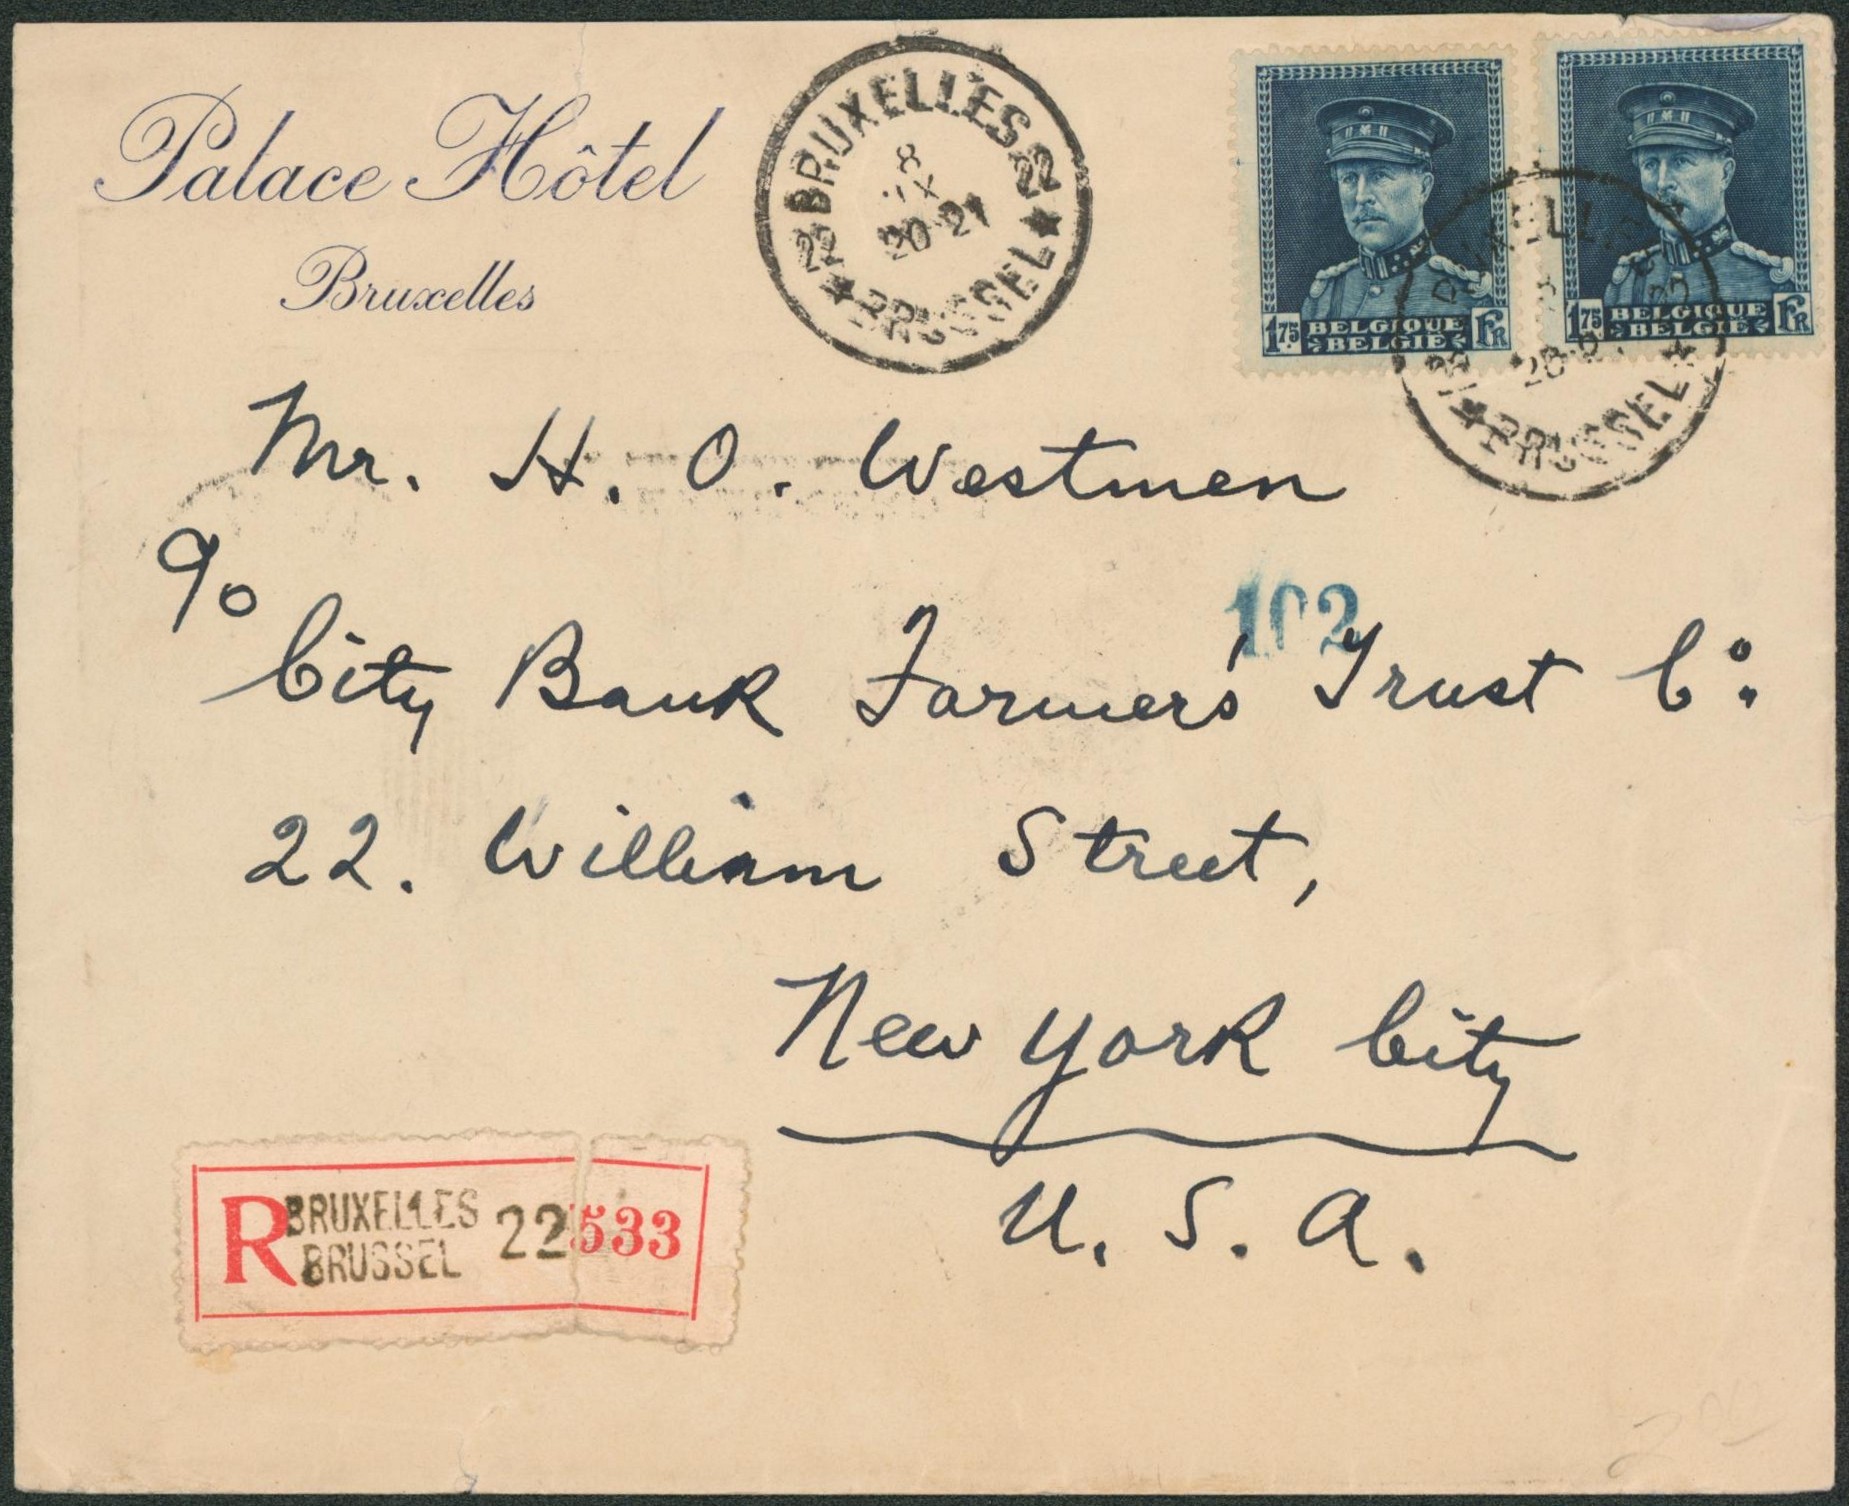 Palace Hôtel
Bruxelles
22 BRUXELLES 22
8
20-21
BRUSSEL
1.75 BELGIQUE BELGIË FR
1.75 BELGIQUE BELGIË FR
22 BRUSSEL
Mr. H. O. Westmen
c/o
City Bank Farmers' Trust Co.
102
22. William Street,
New York City
U. S. A.
R BRUXELLES 22 533
BRUSSEL